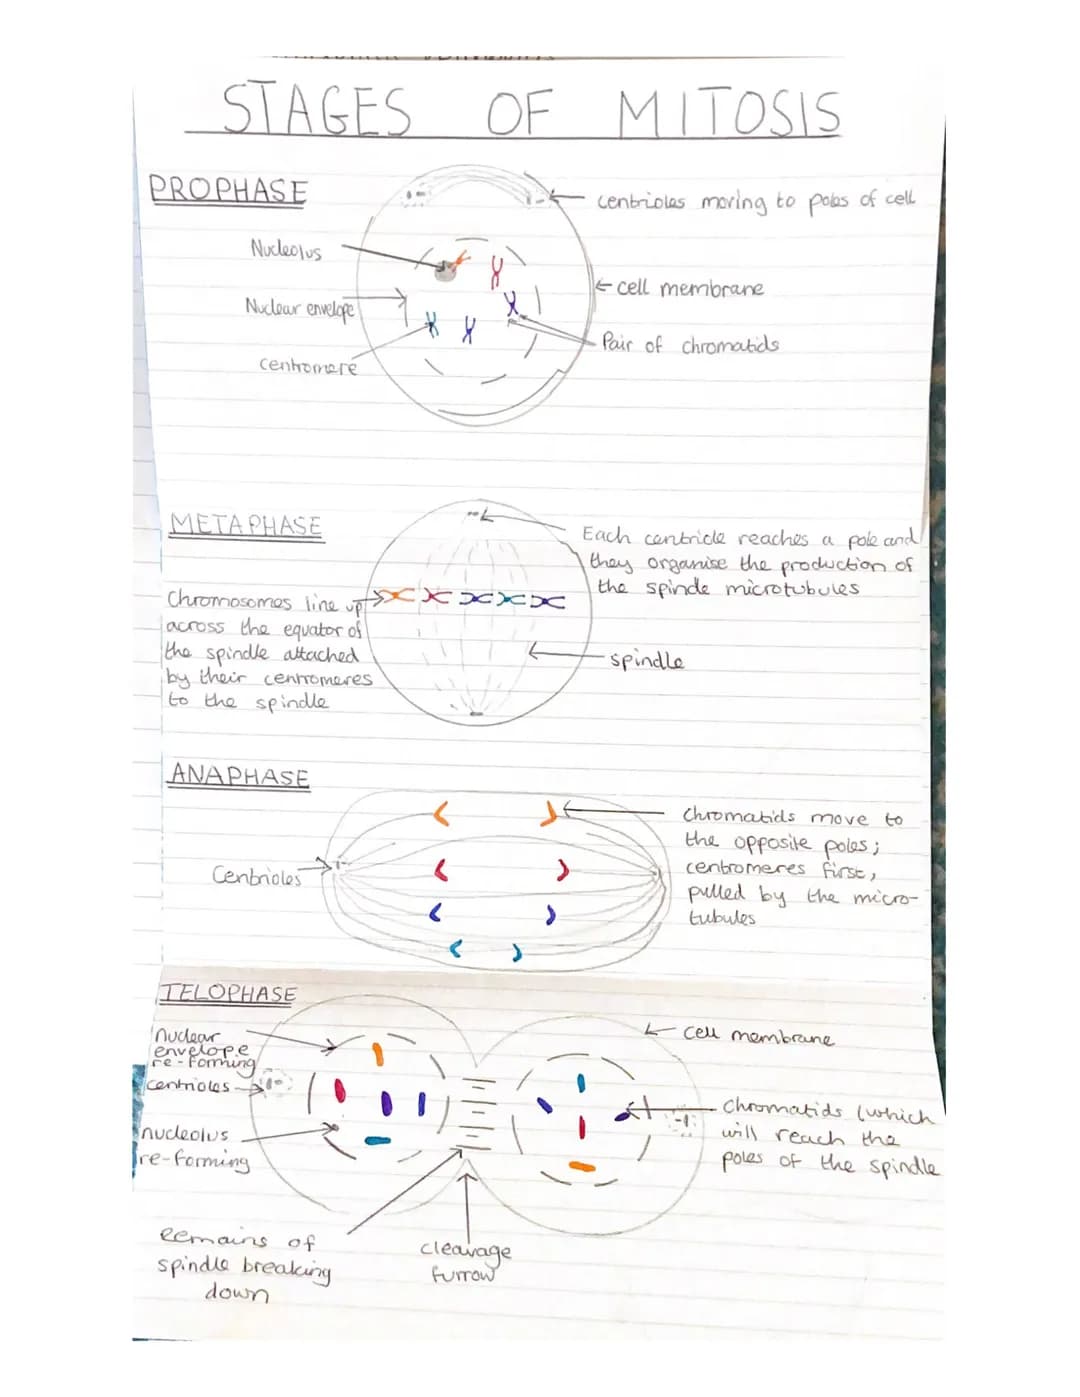 STAGES OF MITOSIS
PROPHASE
centrioles moving to poles of cell
Nucleolus
cell membrane
Nuclear envelope
Pair of chromatids
centromere
METAPHASE
Each centriole reaches a pole and
they organise the production of
the spindle microtubules
Chromosomes line up
across the equator of
the spindle attached
by their centromeres
to the spindle
spindle
ANAPHASE
Chromatids move to
the opposite poles;
centromeres first,
pulled by the micro-
tubules
Centrioles
TELOPHASE
nuclear
envelope
re-forming
centrioles
nucleolus
re-forming
cell membrane
Chromatids (which
will reach the
poles of the spindle
Remains of
spindle breaking
down
cleavage
furrow